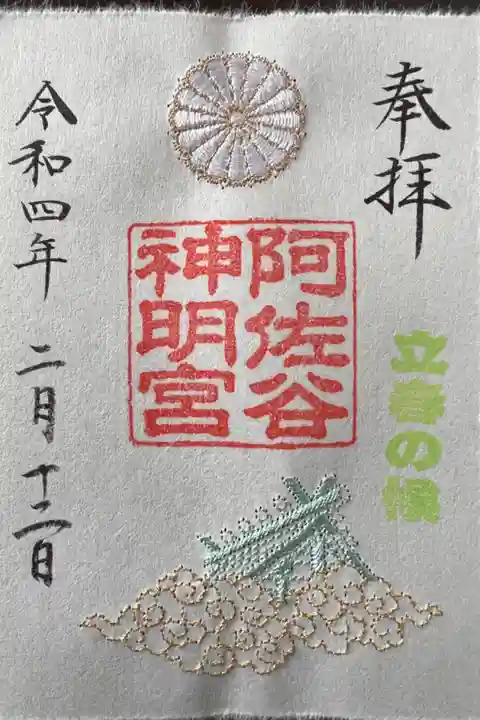 奉拝
立春の候
阿佐谷
神明宮
令和四年 二月 十二日